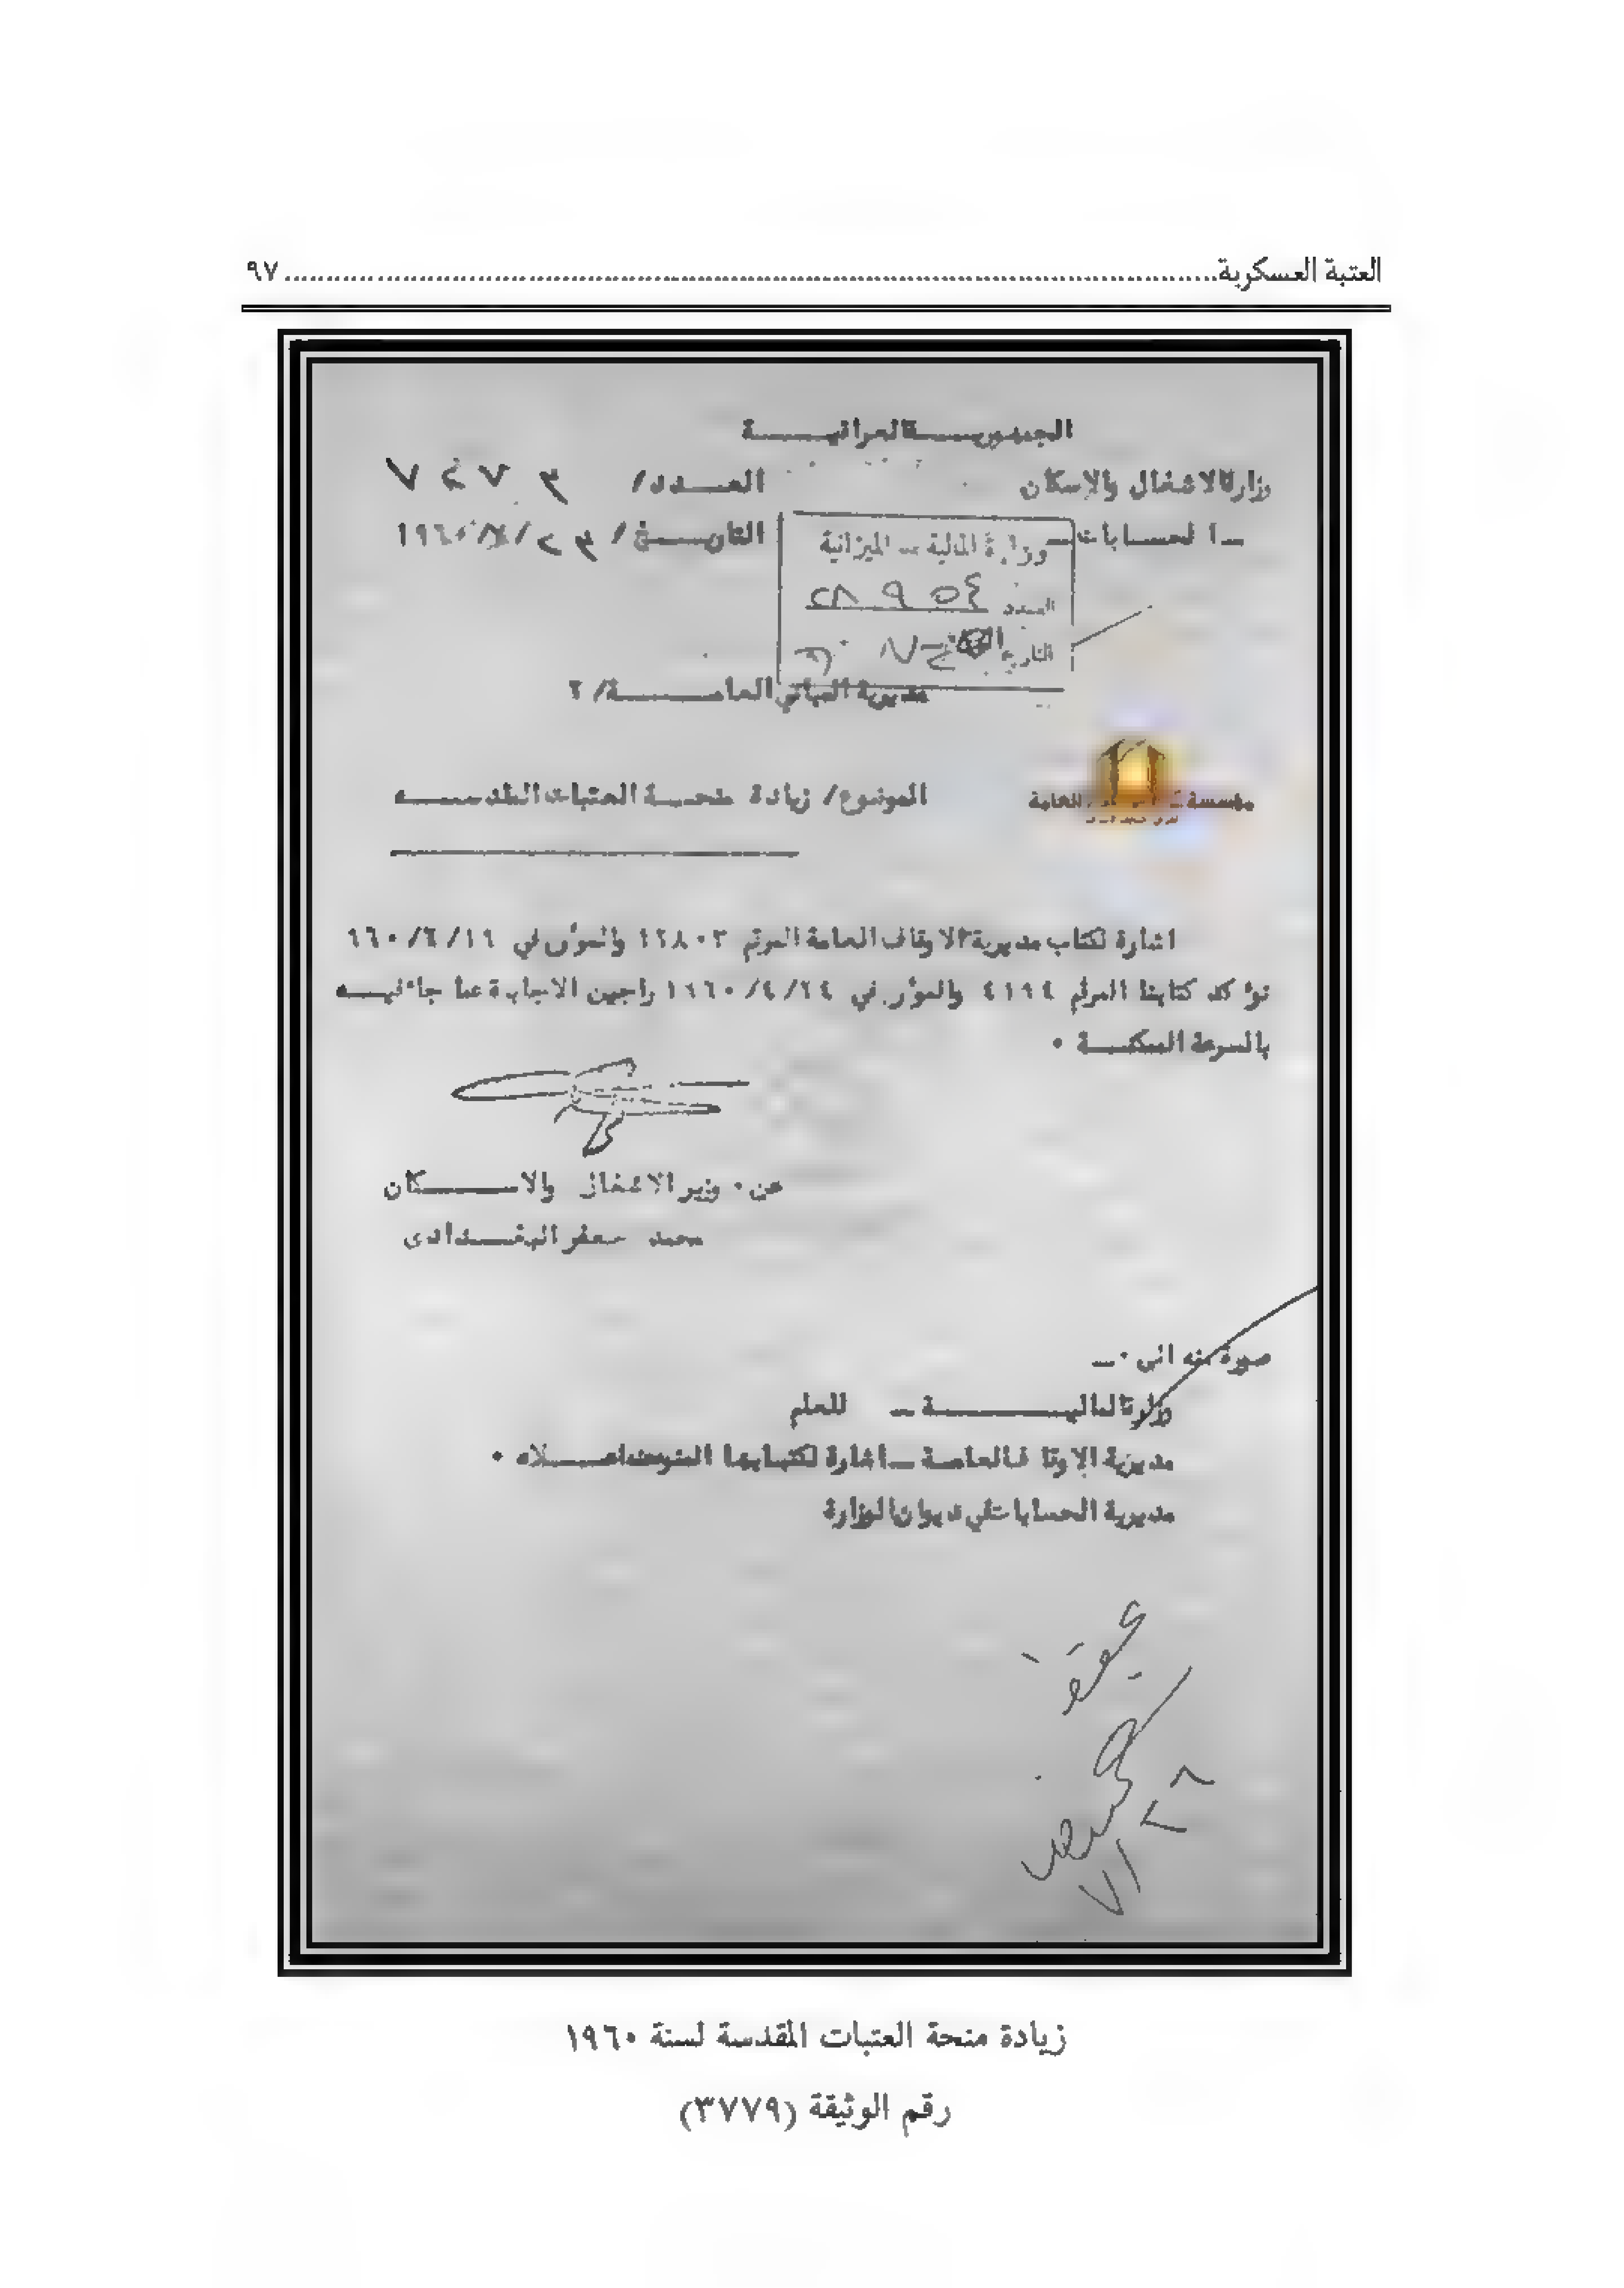 العتبة العسكرية ........ ٩٧
الجمهوريـــة العراقيـــة
وزارة الاشغال والاسكان
العـــدد/
ـ الحسـابات ـ
التاريـــخ/ /١٩٦٠
وزارة المالية ــ الميزانية
العدد
التاريخ
مديرية المباني العامـــة/ ٢
الموضوع/ زيادة منحـة العتبات المقدسـه
اشارة لكتاب مديرية الاوقاف العامة المرقم ١٢٨٠٣ والمؤرخ في
نؤكد كتابنا المرقم والمؤرخ في راجين الاجابة عما جاء فيـه
بالسرعة الممكنـة ٠
عن٠ وزير الاشغال والاســكان
محمد جعفر البغــدادى
صورة منه الى ٠ـ
وزارة الماليـــة ـ للعلم
مديرية الاوقاف العامـة ـ اشارة لكتابها المنوه عنه اعـلاه ٠
مديرية الحسابات في ديوان الوزارة
زيادة منحة العتبات المقدسة لسنة ١٩٦٠
رقم الوثيقة (٣٧٧٩)